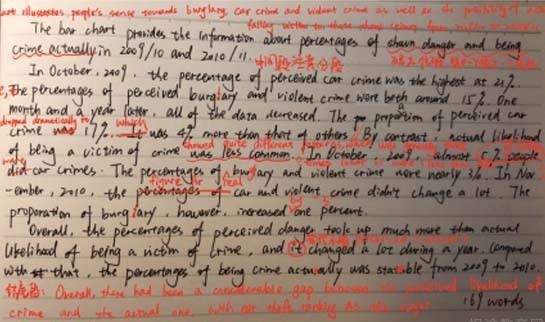 art illustrates people's sense towards burglary, car crime and violent crime as well as the possibility of
The bar chart provides the information about percentages of danger and being
crime actually in 2009/10 and 2010/11.
In October, 2009, the percentage of perceived car crime was the highest at 21%.
the percentages of perceived burglary and violent crime were both around 15%. One
month and a year later, all of the data decreased. The proportion of perceived car
dropped dramatically to which
crime was 17%. It was 4% more than that of others. By contrast, actual likelihood
showed quite different
of being a victim of crime was less common. In October, 2009, almost 7% people
did car crimes. The percentages of burglary and violent crime were nearly 3%. In Nov
figure for real
-ember, 2010, the percentages of car and violent crime didn't change a lot. The
by
proporation of burglary, however, increased one percent.
Overall, the percentages of perceived danger took up much more than actual
likelihood of being a victim of crime, and it changed a lot during a year. Compared
with that, the percentages of being crime actually was stable from 2009 to 2010.
Overall, there had been a considerable gap between the perceived likelihood of
crime and the actual one, with car theft ranking as the major
169 words